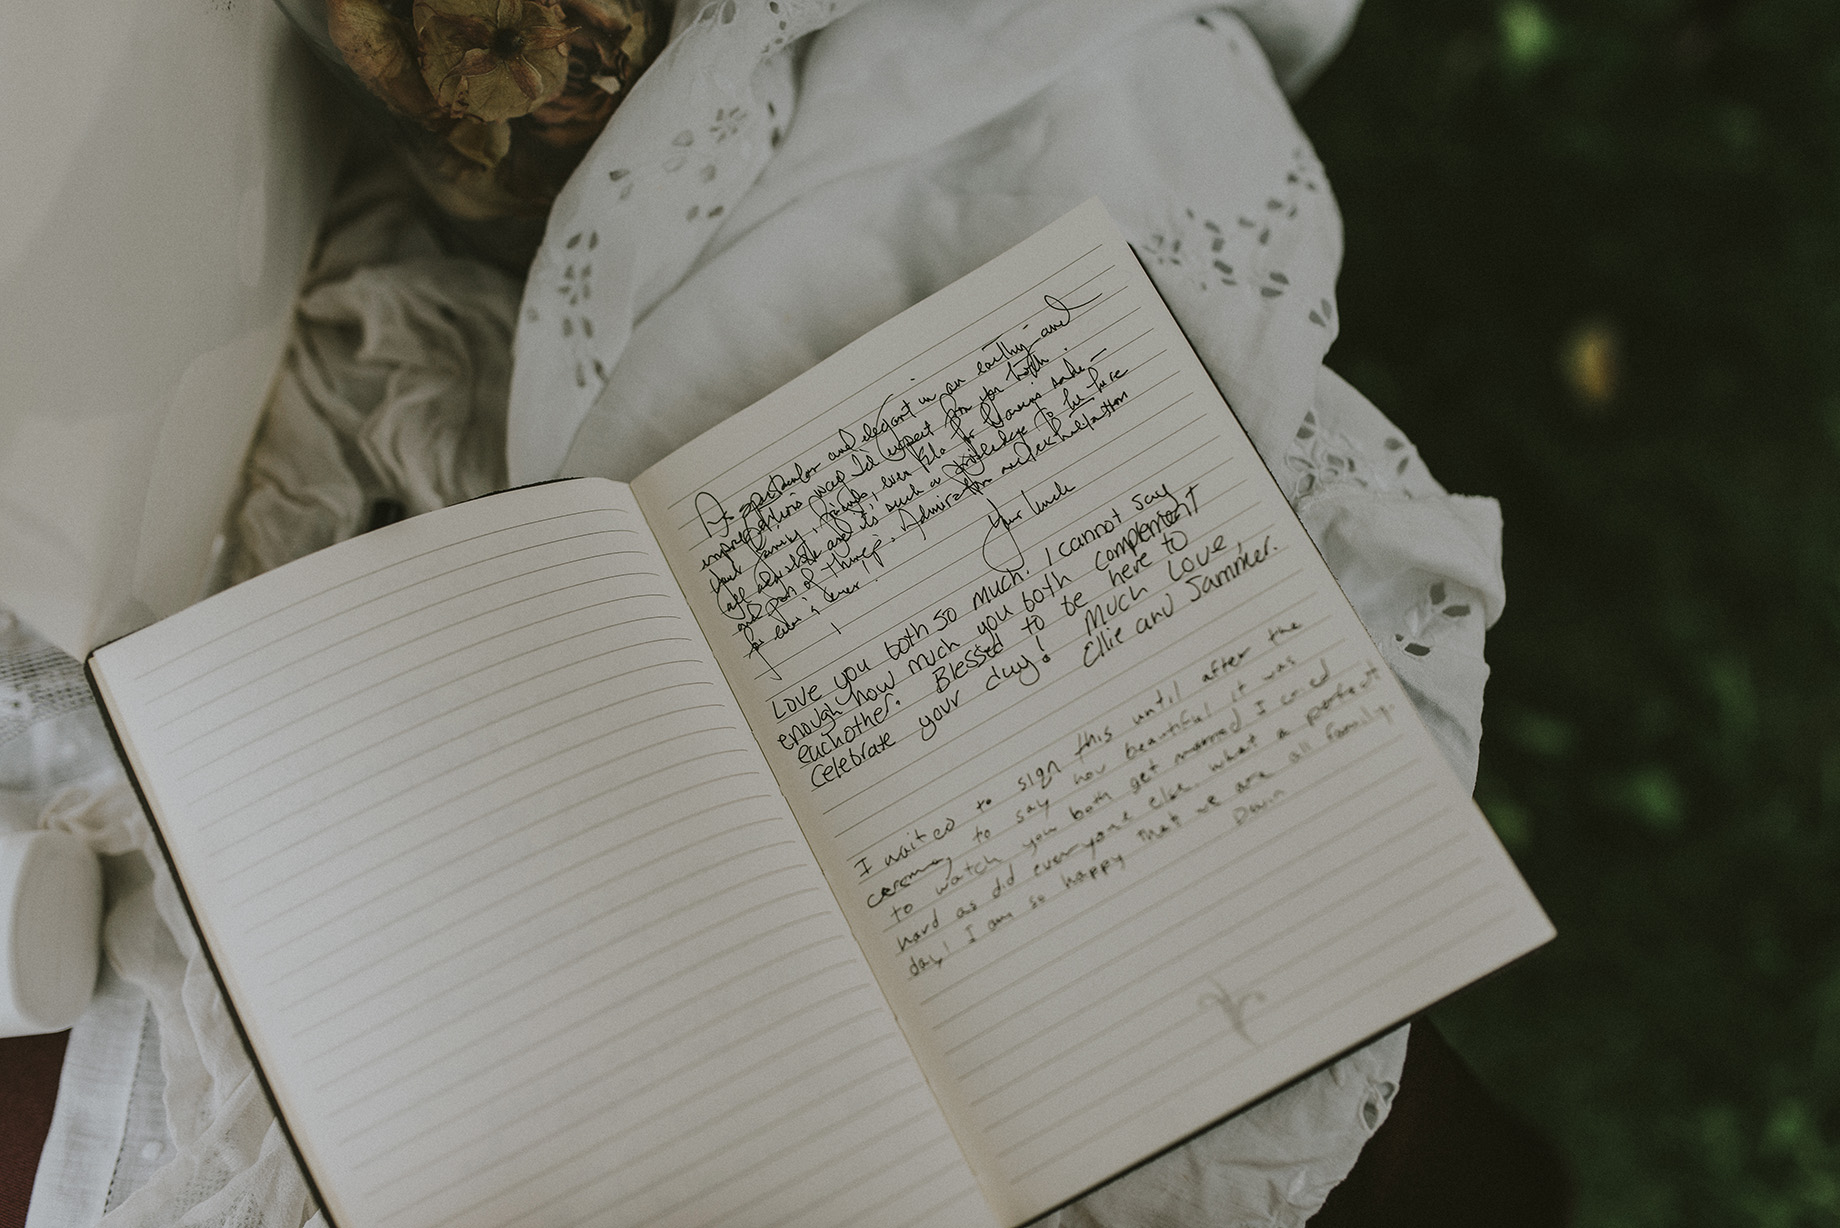 As spectacular and elegant in an earthy and
way I'd expect from you both.
Your family, friends, even
and it's such a privilege to be here
and part of things. Admiration and exhultation
for
Love you both so much. I cannot say
enough how much you both complement
eachother. Blessed to be here to
celebrate your day! Much Love,
Ellie and Jammer.
I waited to sign this until after the
ceremony to say how beautiful it was
to watch you both get married I cried
hard as did everyone else. what a perfect
day! I am so happy that we are all family.